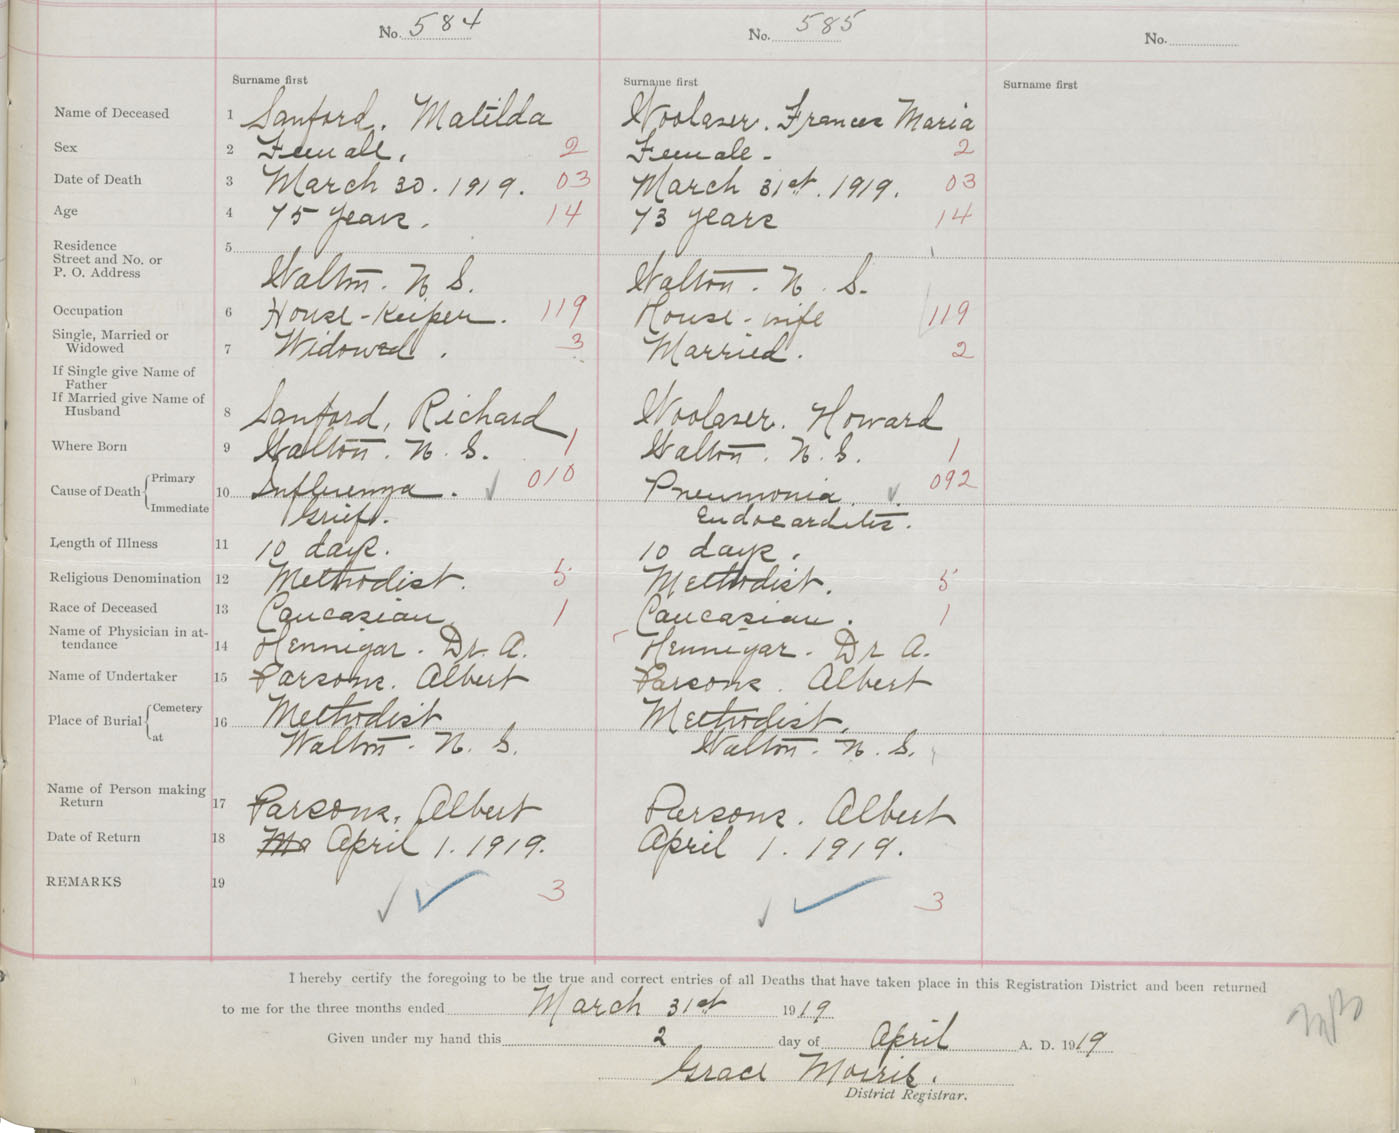 No. 584 No. 585 No.
Surname first Surname first Surname first
Name of Deceased 1 Sanford, Matilda Woolaver. Frances Maria
Sex 2 Female. 2 Female - 2
Date of Death 3 March 30. 1919. 03 March 31st. 1919. 03
Age 4 75 years. 14 73 years 14
Residence 5
Street and No. or
P. O. Address Walton. N. S. Walton. N. S.
Occupation 6 House-Keeper. 119 House-wife 119
Single, Married or
Widowed 7 Widowed. 3 Married. 2
If Single give Name of
Father
If Married give Name of
Husband 8 Sanford, Richard Woolaver. Howard
Where Born 9 Walton. N. S. 1 Walton. N. S. 1
Cause of Death Primary 10 Influenza. 010 Pneumonia 092
Immediate Grief. Endocarditis.
Length of Illness 11 10 days. 10 days.
Religious Denomination 12 Methodist. 5 Methodist. 5
Race of Deceased 13 Caucasian. 1 Caucasian. 1
Name of Physician in at-
tendance 14 Hennigar. Dr. A. Hennigar. Dr A.
Name of Undertaker 15 Parsons. Albert Parsons. Albert
Place of Burial Cemetery 16 Methodist Methodist.
at Walton. N. S. Walton. N. S.
Name of Person making
Return 17 Parsons, Albert Parsons. Albert
Date of Return 18 Ma April 1. 1919. April 1. 1919.
REMARKS 19 3 3
I hereby certify the foregoing to be the true and correct entries of all Deaths that have taken place in this Registration District and been returned
to me for the three months ended March 31st 1919
Given under my hand this 2 day of April A. D. 1919
Grace Morris.
District Registrar.